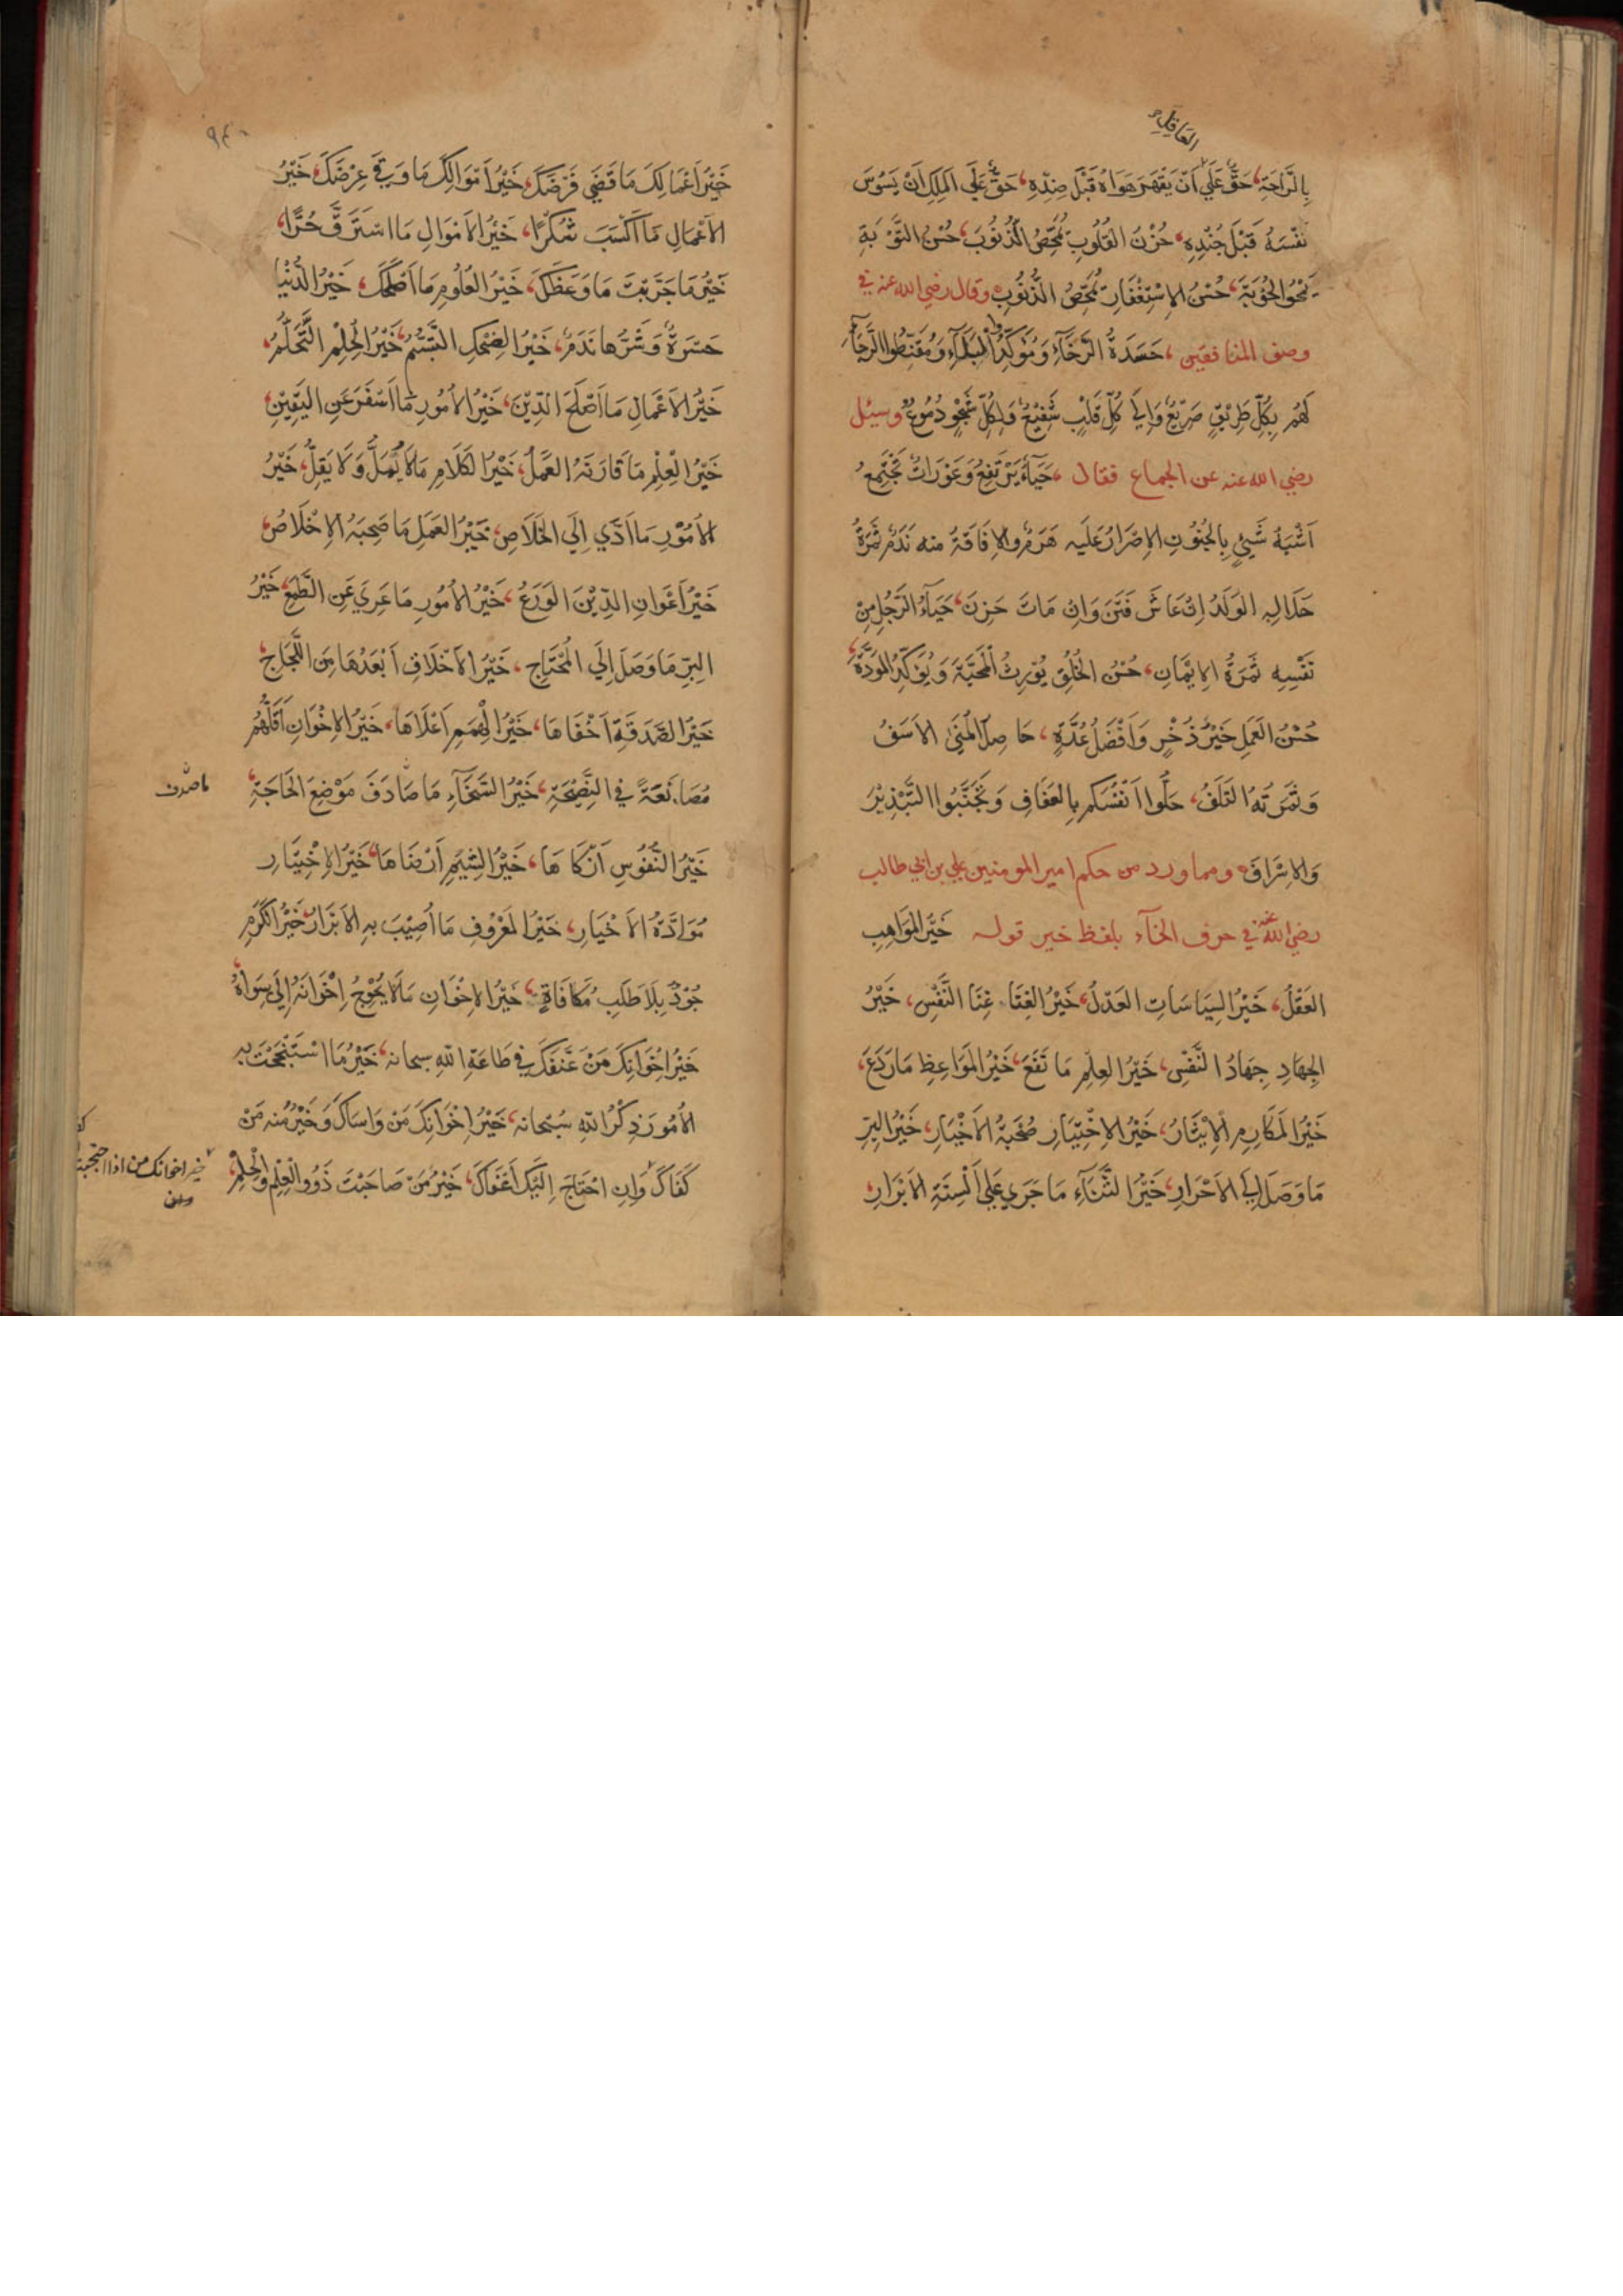 العَاقِلِ
بِالرَّاحَةِ، حَقٌّ عَلَى اَنْ يَقْهَرَ هَوَاهُ قَبْلَ ضِدِّهِ، حَقٌّ عَلَى المَلِكِ اَنْ يَسُوسَ
نَفْسَهُ قَبْلَ جُنْدِهِ، حُزْنُ القُلُوبِ يُمَحِّصُ الذُّنُوبَ، حُسْنُ التَّوْبَةِ
يَمْحُو الحُوبَةَ، حُسْنُ الاِسْتِغْفَارِ يُمَحِّصُ الذُّنُوبِ وقال رضي الله عنه في
وصف المنافقين، حَسَدَةُ الرَّخَآءِ وَمُؤَكِّدُوا البَلَآءِ وَمُقَنِّطُوا الرَّجَآءِ
لَهُمْ بِكُلِّ طَرِيْقٍ صَرِيْعٌ وَاِلَى كُلِّ قَلْبٍ شَفِيْعٌ وَلِكُلِّ شَجْوٍ دُمُوعٌ وسئل
رضي الله عنه عن الجماع فقال، حَيَآءٌ يَرْتَفِعُ وَعَوْرَاتٌ تَجْتَمِعُ
اَشْبَهُ شَيْئٍ بِالجُنُوْنِ الاِصْرَارُ عَلَيه هَرَمٌ والاِفَاقَةُ منه نَدَمٌ ثَمَرَةُ
حَلَالِهِ الوَلَدُ اِنْ عَاشَ فَتَنَ وَاِنْ مَاتَ حَزِنَ، حَيَآءُ الرَّجُلِ مِنْ
نَفْسِهِ ثَمَرَةُ الاِيْمَانِ، حُسْنُ الخُلُقِ يُوْرِثُ المَحَبَّةَ وَيُؤَكِّدُ المَوَدَّةَ،
حُسْنُ العَمَلِ خَيْرُ ذُخْرٍ وَاَفْضَلُ عُدَّةٍ، حَاصِلُ المُنَى الاَسَفُ
وَثَمَرَتُهُ التَّلَفُ، حَلُّوا اَنْفُسَكُم بِالعَفَافِ وَتَجَنَّبُوا التَّبْذِيْرَ
وَالاِسْرَافَ ومما ورد من حكم امير المومنين علي بن ابي طالب
رضي الله عنه في حرف الخآء بلفظ خير قوله خَيْرُ المَوَاهِبِ
العَقْلُ، خَيْرُ السِّيَاسَاتِ العَدْلُ، خَيْرُ الغِنَا غِنَا النَّفْسِ، خَيْرُ
الجِهَادِ جِهَادُ النَّفْسِ، خَيْرُ العِلْمِ مَا نَفَعَ، خَيْرُ المَوَاعِظِ مَارَدَعَ،
خَيْرُ المَكَارِمِ الاِيْثَارُ، خَيْرُ الاِخْتِيَارِ صُحْبَةُ الاَخْيَارِ، خَيْرُ البِرِّ
مَا وَصَلَ اِلَى الاَحْرَارِ، خَيْرُ الثَّنَآءِ مَا جَرَى عَلَى اَلْسِنَةِ الاَبْرَارِ،
خَيْرُ اَعْمَالِكَ مَا قَضَى فَرْضَكَ، خَيْرُ اَمْوَالِكَ مَا وَقَى عِرْضَكَ، خَيْرُ
الاَعْمَالِ مَا اَكْسَبَ شُكْرًا، خَيْرُ الاَمْوَالِ مَا اسْتَرَقَّ حُرًّا،
خَيْرُ مَا جَرَّبْتَ مَا وَعَظَكَ، خَيْرُ العُلُوْمِ مَا اَصْلَحَكَ، خَيْرُ الدُّنْيَا
حَسْرَةٌ وَشَرُّهَا نَدَمٌ، خَيْرُ الضِّحْكِ التَّبَسُّمُ، خَيْرُ الحِلْمِ التَّحَلُّمُ،
خَيْرُ الاَعْمَالِ مَا اَصْلَحَ الدِّيْنَ، خَيْرُ الاُمُوْرِ مَا اَسْفَرَ عَنِ اليَقِيْنِ،
خَيْرُ العِلْمِ مَا قَارَنَهُ العَمَلُ، خَيْرُ الكَلَامِ مَالَا يُمِلُّ وَلَا يَقِلُّ، خَيْرُ
الاُمُوْرِ مَا اَدَّى اِلَى الخَلَاصِ، خَيْرُ العَمَلِ مَا صَحِبَهُ الاِخْلَاصُ،
خَيْرُ اَعْوَانِ الدِّيْنِ الوَرَعُ، خَيْرُ الاُمُوْرِ مَا عَرِيَ عَنِ الطَّمَعِ، خَيْرُ
البِرِّ مَا وَصَلَ اِلَى المُحْتَاجِ، خَيْرُ الاَخْلَاقِ اَبْعَدُهَا مِنَ اللَّجَاجِ،
خَيْرُ الصَّدَقَةِ اَخْفَاهَا، خَيْرُ الهِمَمِ اَعْلَاهَا، خَيْرُ الاِخْوَانِ اَقَلُّهُمْ
مُصَانَعَةً في النَّصِيْحَةِ، خَيْرُ السَّخَآءِ مَا صَادَفَ مَوْضِعَ الحَاجَةِ،
خَيْرُ النُّفُوْسِ اَزْكَاهَا، خَيْرُ الشِّيَمِ اَرْضَاهَا، خَيْرُ الاِخْتِيَارِ
مُوَادَّةُ الاَخْيَارِ، خَيْرُ المَعْرُوْفِ مَا اُصِيْبَ بِهِ الاَبْرَارُ، خَيْرُ الكَرَمِ
جُوْدٌ بِلَا طَلَبِ مُكَافَاةٍ، خَيْرُ الاِخْوَانِ مَالَا يُحْوِجُ اِخْوَانَهُ اِلَى سِوَاهُ،
خَيْرُ اِخْوَانِكَ مَنْ عَنَّفَكَ في طَاعَةِ اللهِ سبحانه، خَيْرُ مَا اسْتَنْجَحْتَ به
الاُمُوْرَ ذِكْرُ اللهِ سُبْحَانه، خَيْرُ اِخْوَانِكَ مَنْ وَاسَاكَ وَخَيْرٌ مِنْه مَنْ
كَفَاكَ وَاِنِ احْتَاجَ اِلَيْكَ اَعْفَاكَ، خَيْرُ مَنْ صَاحَبْتَ ذَوُو العِلْمِ وَالحِلْمِ،
خير اخوانك من اذا احتجت